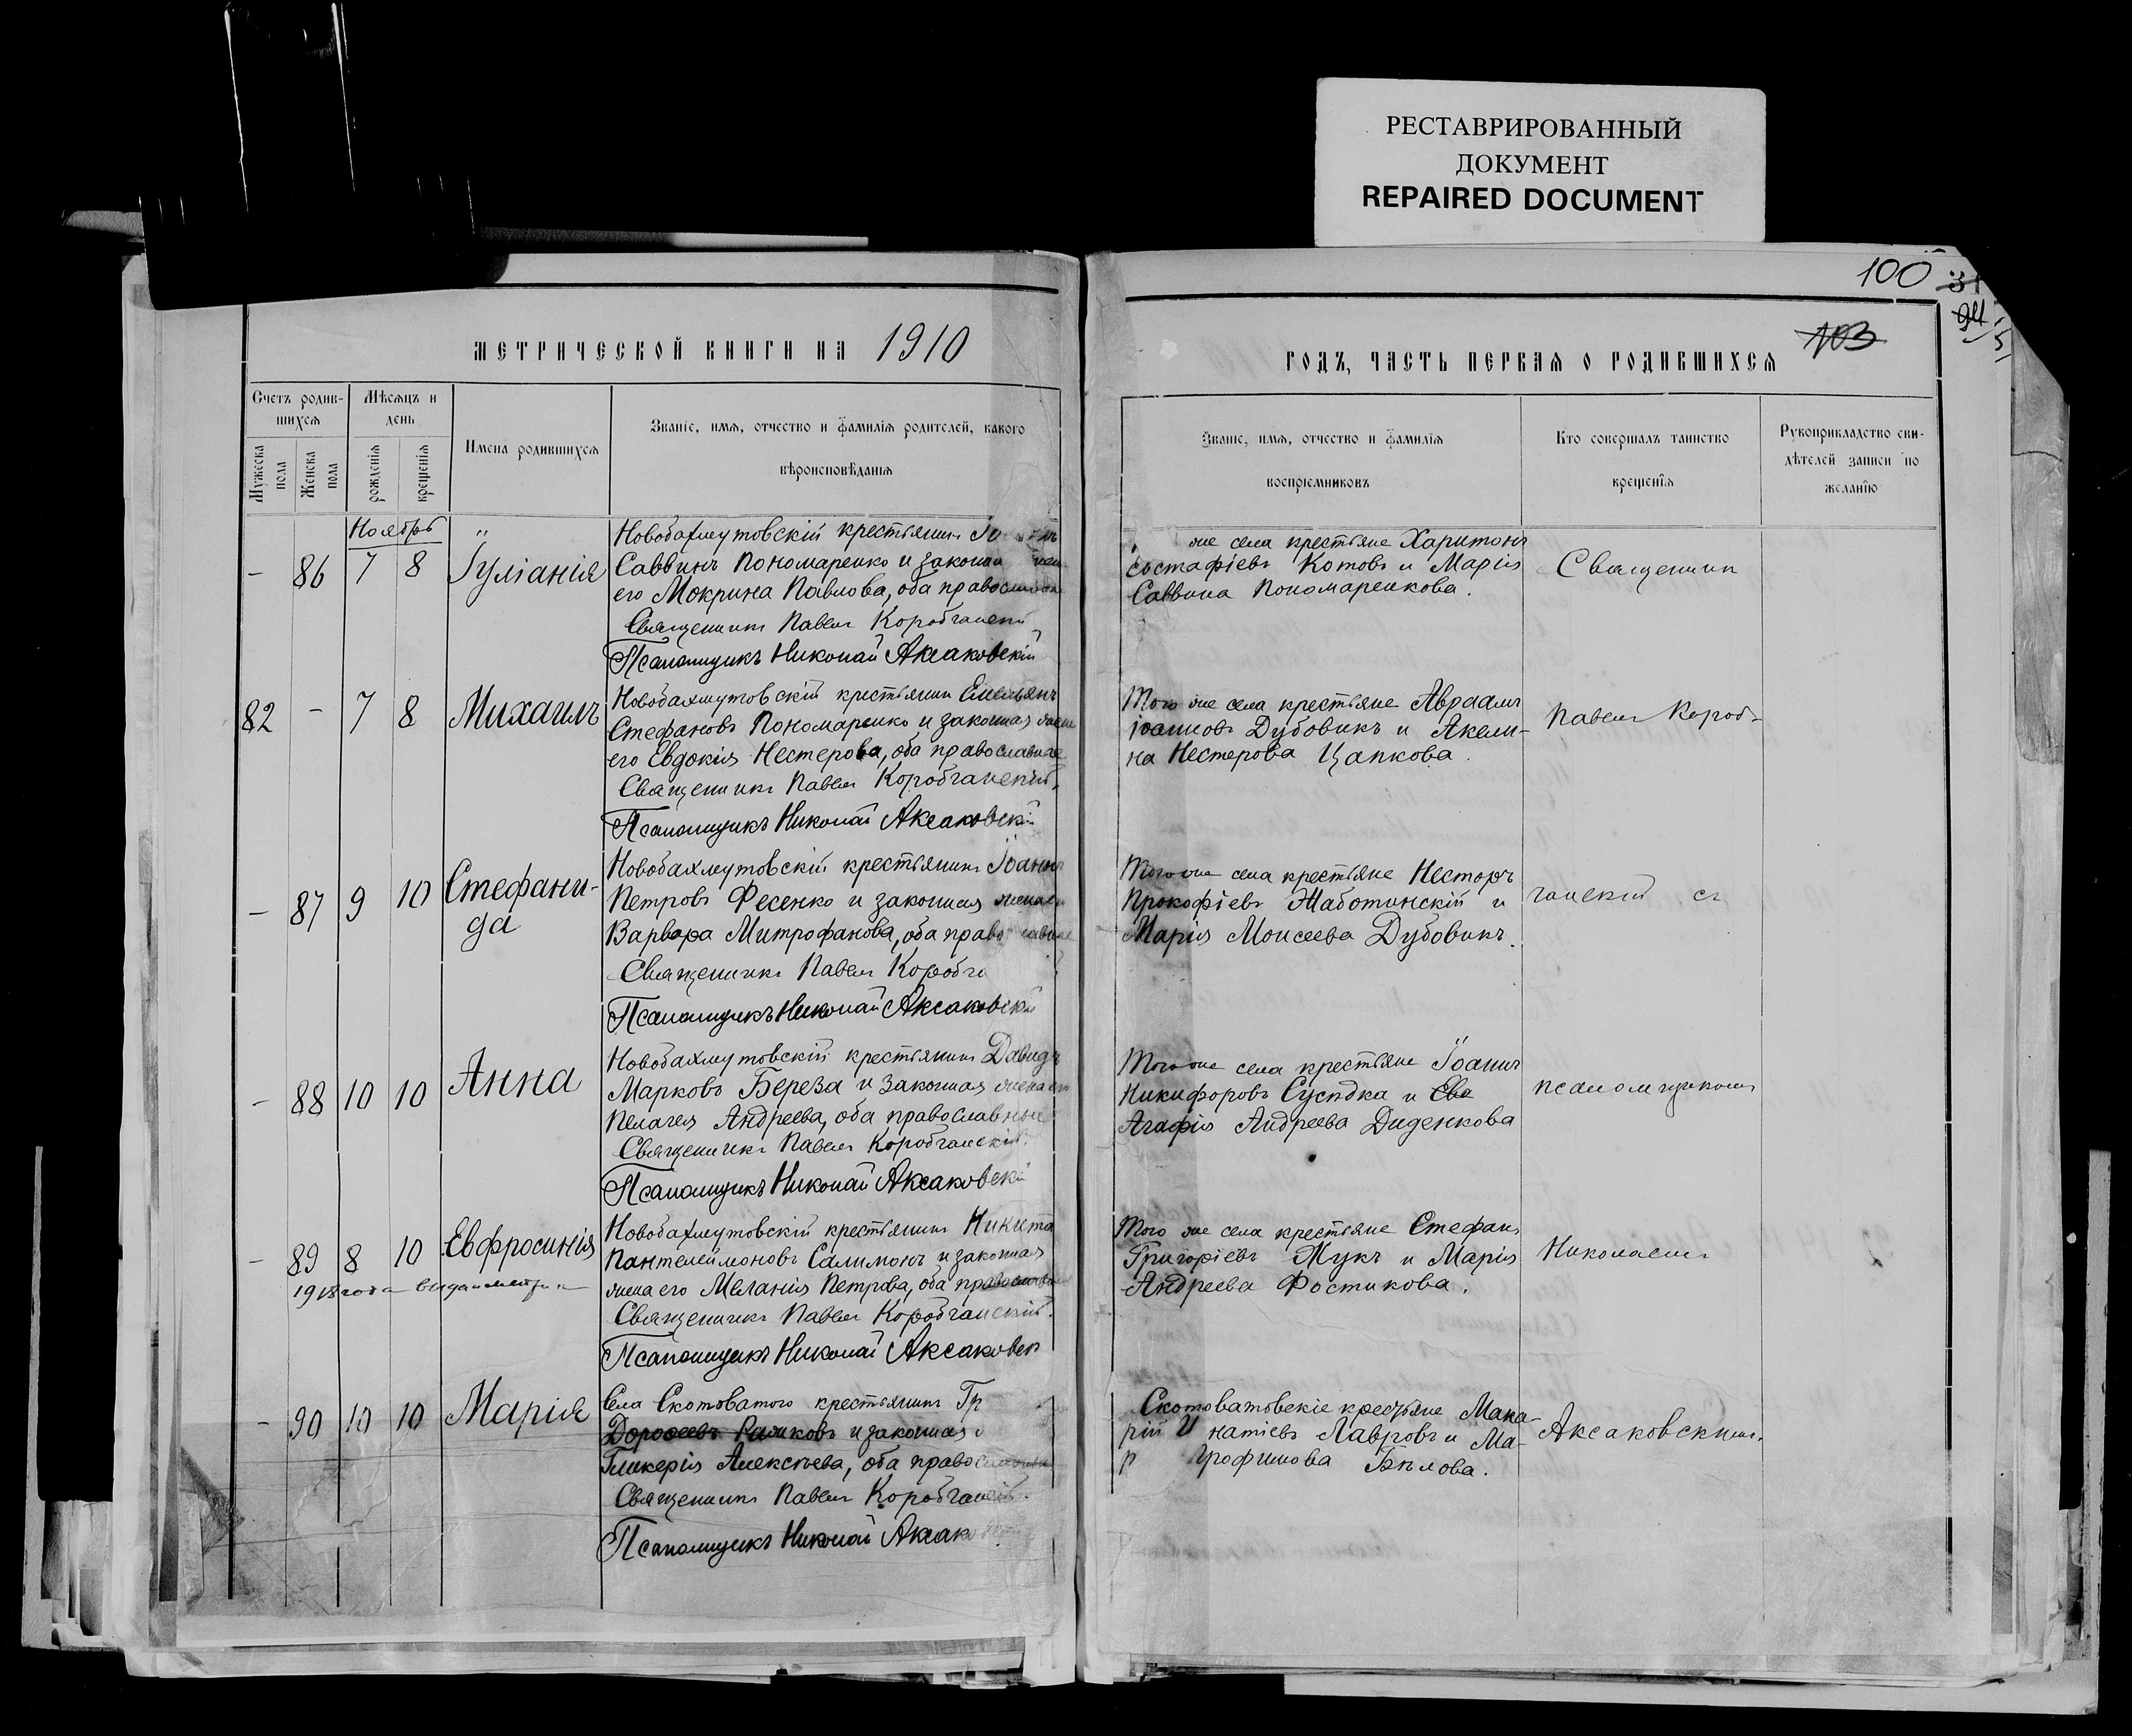 РЕСТАВРИРОВАННЫЙ
ДОКУМЕНТ
REPAIRED DOCUMENT
100
31
94
103
МЕТРИЧЕСКОЙ КНИГИ НА 1910
ГОДЪ, ЧАСТЬ ПЕРВАЯ О РОДИВШИХСЯ
Счетъ родив-
шихся
Мужеска пола
Женска пола
Мѣсяцъ и
день
рожденія
крещенія
Имена родившихся
Званіе, имя, отчество и фамилія родителей, какого
вѣроисповѣданія
Званіе, имя, отчество и фамилія
воспріемниковъ
Кто совершалъ таинство
крещенія
Рукоприкладство сви-
дѣтелей записи по
желанію
Ноябрь
- 86 7 8 Іуліанія
Новобахмутовскій крестьянинъ
Саввинъ Пономаренко и законная
его Мокрина Павлова, оба православные
Священникъ Павелъ Коробчанскій
Псаломщикъ Николай Аксаковскій
же села крестьяне Харитонъ
Евстафіевъ Котовъ и Марія
Саввина Пономаренкова.
Священникъ
82 - 7 8 Михаилъ
Новобахмутовскій крестьянинъ Емельянъ
Стефановъ Пономаренко и законная жена
его Евдокія Нестерова, оба православные
Священникъ Павелъ Коробчанскій.
Псаломщикъ Николай Аксаковскій
Того же села крестьяне Авраамъ
Іоанновъ Дубовикъ и Акели-
на Нестерова Цапкова.
Павелъ Короб-
- 87 9 10 Стефани-
да
Новобахмутовскій крестьянинъ Іоаннъ
Петровъ Фесенко и законная жена его
Варвара Митрофанова, оба православные
Священникъ Павелъ Коробча
Псаломщикъ Николай Аксаковскій
Того же села крестьяне Несторъ
Прокофіевъ Жаботинскій и
Марія Моисеева Дубовикъ.
чанскій съ
- 88 10 10 Анна
Новобахмутовскій крестьянинъ Давидъ
Марковъ Береза и законная жена его
Пелагея Андреева, оба православные
Священникъ Павелъ Коробчанскій.
Псаломщикъ Николай Аксаковскій
Того же села крестьяне Іоаннъ
Никифоровъ Сусѣдка и Ева
Агафія Андреева Диденкова
псаломщикомъ
- 89 8 10 Евфросинія
1918 года выдан метрик
Новобахмутовскій крестьянинъ Никита
Пантелеймоновъ Салимонъ и законная
жена его Меланія Петрова, оба православные
Священникъ Павелъ Коробчанскій.
Псаломщикъ Николай Аксаковск
Того же села крестьяне Стефанъ
Григоріевъ Жукъ и Марія
Андреева Фостикова.
Николаемъ
- 90 10 10 Марія
Села Скотоватого крестьянинъ Гр
Дорофеевъ и законная
Гликерія Алексѣева, оба православные
Священникъ Павелъ Коробчанскій.
Псаломщикъ Николай Аксаков
Скотоватовскіе крестьяне Мака-
рій И натіевъ Лавровъ и Ма-
р трофимова Бѣлова.
Аксаковскимъ.